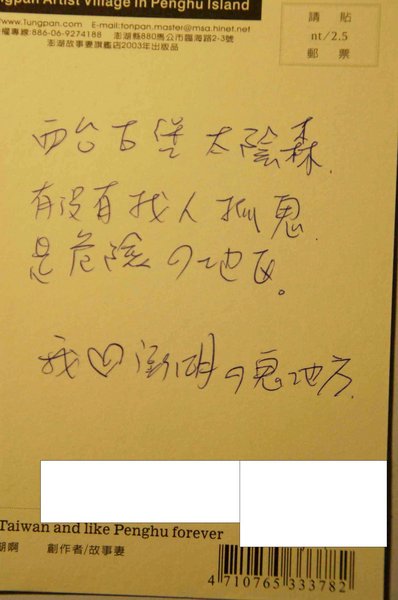 ngpan Artist Village in Penghu Island
www.Tungpan.com E-mail：tonpan.master@msa.hinet.net
權專線:886-06-9274188 澎湖縣880馬公市臨海路2-3號
澎湖故事妻旗艦店2003年出版品
請貼
nt/2.5
郵票
西台古堡太陰森.
有没有找人抓鬼.
是危險の地区。
我♡澎湖の鬼地方.
Taiwan and like Penghu forever
湖啊 創作者/故事妻
4 710765 333782